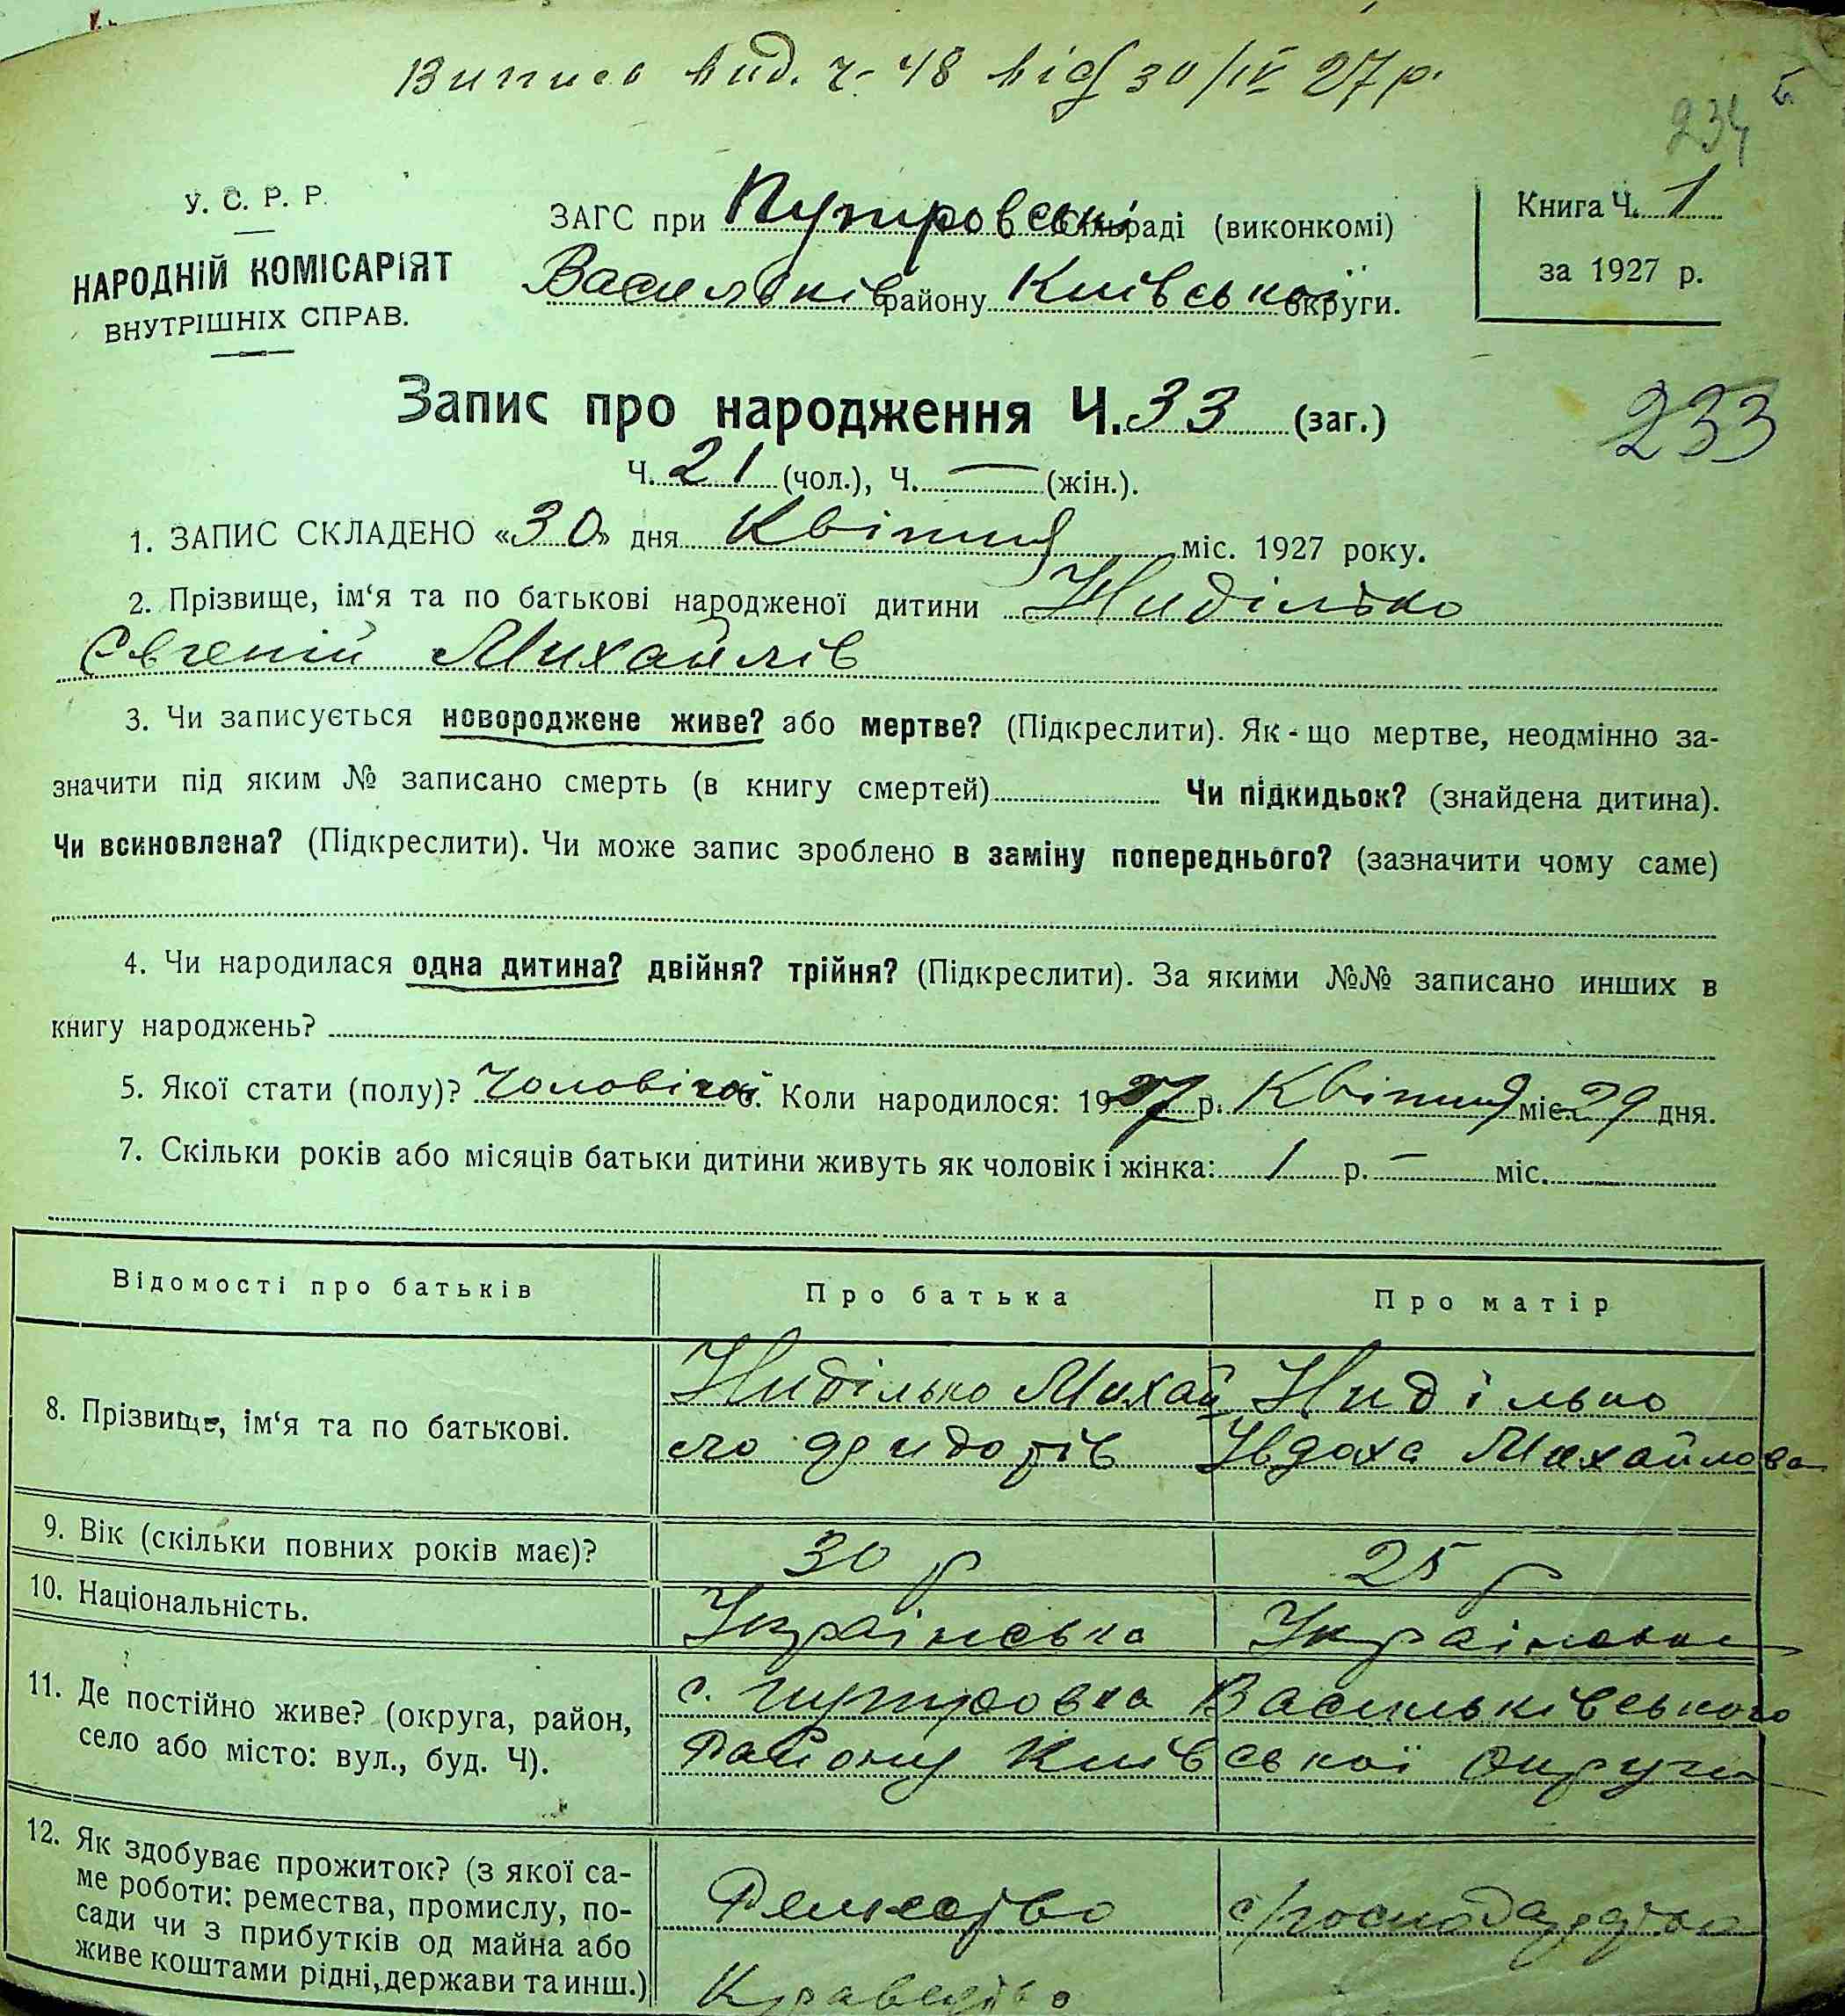 Випись вид. ч. 48 від 30/IV 27 р.
234
У. С. Р. Р.
НАРОДНІЙ КОМІСАРІЯТ
ВНУТРІШНІХ СПРАВ.
ЗАГС при Путровській сільраді (виконкомі)
Васильків району Київської округи.
Книга Ч. 1
за 1927 р.
Запис про народження Ч. 33 (заг.)
233
Ч. 21 (чол.), Ч. — (жін.).
1. ЗАПИС СКЛАДЕНО «30» дня Квітня міс. 1927 року.
2. Прізвище, ім‘я та по батькові народженої дитини Ниділько
Євгеній Михайлів
3. Чи записується новороджене живе? або мертве? (Підкреслити). Як-що мертве, неодмінно за-
значити під яким № записано смерть (в книгу смертей) Чи підкидьок? (знайдена дитина).
Чи всиновлена? (Підкреслити). Чи може запис зроблено в заміну попереднього? (зазначити чому саме)
4. Чи народилася одна дитина? двійня? трійня? (Підкреслити). За якими №№ записано инших в
книгу народжень?
5. Якої стати (полу)? Чоловічої. Коли народилося: 1927 р. Квітня міс. 29 дня.
7. Скільки років або місяців батьки дитини живуть як чоловік і жінка: 1 р. — міс.
Відомості про батьків Про батька Про матір
8. Прізвище, ім‘я та по батькові.
Ниділько Михай Ниділько
ло Сидорів Івдоха Михайлова
9. Вік (скільки повних років має)? 30 р 25 р
10. Національність. Українська Українська
11. Де постійно живе? (округа, район,
село або місто: вул., буд. Ч).
с. Путровка Васильківського
Району Київської Округи
12. Як здобуває прожиток? (з якої са-
ме роботи: ремества, промислу, по-
сади чи з прибутків од майна або
живе коштами рідні, держави та инш.)
Ремество с/господарство
Кравецтво